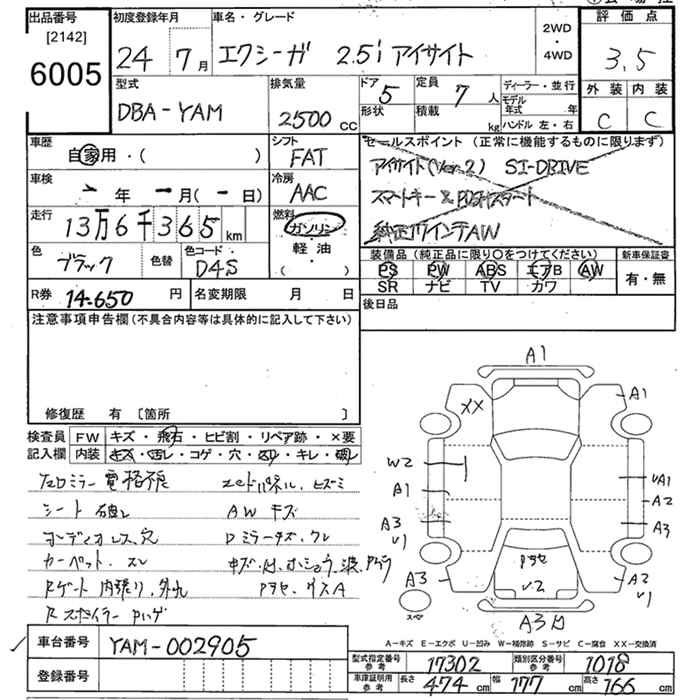 出品番号
[2142]
6005
初度登録年月
24 7月
車名・グレード
エクシーガ 2.5i アイサイト
2WD
・
4WD
評価点
3.5
外装 内装
C C
型式
DBA-YAM
排気量
2500 cc
ドア
5
形状
定員
7人
積載
kg
ディーラー・並行
モデル年式 年
ハンドル 左・右
車歴
自家用・( )
シフト
FAT
セールスポイント (正常に機能するものに限ります)
アイサイト(Ver.2) SI-DRIVE
スマートキー & PUSHスタート
純正17インチAW
車検
年 月( 日)
冷房
AAC
走行
13万6千365 km
燃料
ガソリン
・
軽・油
( )
色
ブラック
色替
色コード
D4S
装備品 (純正品に限り○をつけてください)
PS PW ABS エアB AW
SR ナビ TV カワ
新車保証書
有・無
R券 14.650 円
名変期限 月 日
後日品
注意事項申告欄 (不具合内容等は具体的に記入して下さい)
修復歴 有 [箇所 ]
検査員
記入欄
FW キズ・飛石・ヒビ割・リペア跡・×要
内装 キズ・汚レ・コゲ・穴・スリ・キレ・破レ
シート 破レ
AW キズ
カーペット スレ
Rゲート 内張り 外れ
Rスポイラー Pハゲ
A1
XX
A1
W2
A1
A3
U1
UA1
A2
A3
U1
A3
Pヨセ
U2
A2
U1
スペア
A3
A-キズ E-エクボ U-凹み W-補修跡 S-サビ C-腐食 XX-交換済
車台番号 YAM-002905
登録番号
型式指定番号
参考
17302
類別区分番号
参考
1018
車庫証明用
参考
長さ 474 cm
幅 177 cm
高さ 166 cm